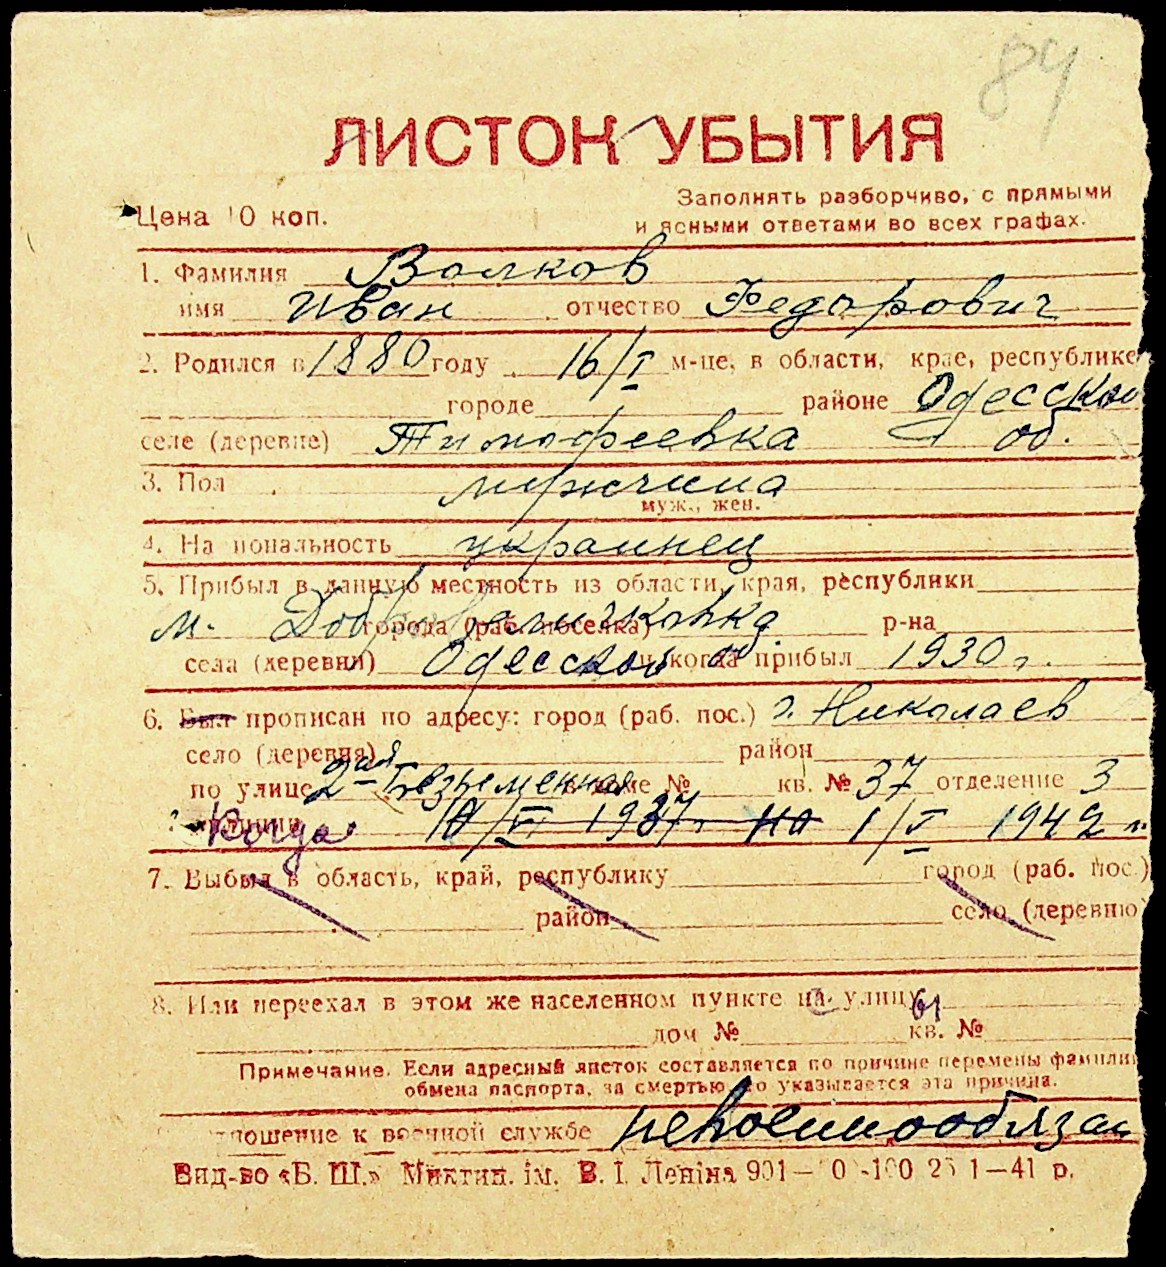 84
ЛИСТОК УБЫТИЯ
Цена 10 коп.
Заполнять разборчиво, с прямыми
и ясными ответами во всех графах.
1. Фамилия Волков
имя Иван отчество Федорович
2. Родился в 1880 году 16/I м-це, в области, крае, республике
городе районе Одесской
селе (деревне) Тимофеевка об.
3. Пол мужчина
муж., жен.
4. Национальность украинец
5. Прибыл в данную местность из области, края, республики
м. Добровеличковка города (раб. поселка) р-на
села (деревни) Одесской об. и когда прибыл 1930 г.
6. Был прописан по адресу: город (раб. пос.) г. Николаев
село (деревня) район
по улице 2ая Безыменная в доме № кв. № 37 отделение 3
милиции Когда 10/VI 1937 г на 1/V 1942 г.
7. Выбыл в область, край, республику город (раб. пос.)
район село (деревню)
8. Или переехал в этом же населенном пункте на улицу
дом № 61 кв. №
Примечание. Если адресный листок составляется по причине перемены фамилии
обмена паспорта, за смертью, то указывается эта причина.
отношение к военной службе невоеннообязан
Вид-во «Б. Ш.» Миктип. ім. В. І. Леніна 901— 1—41 р.